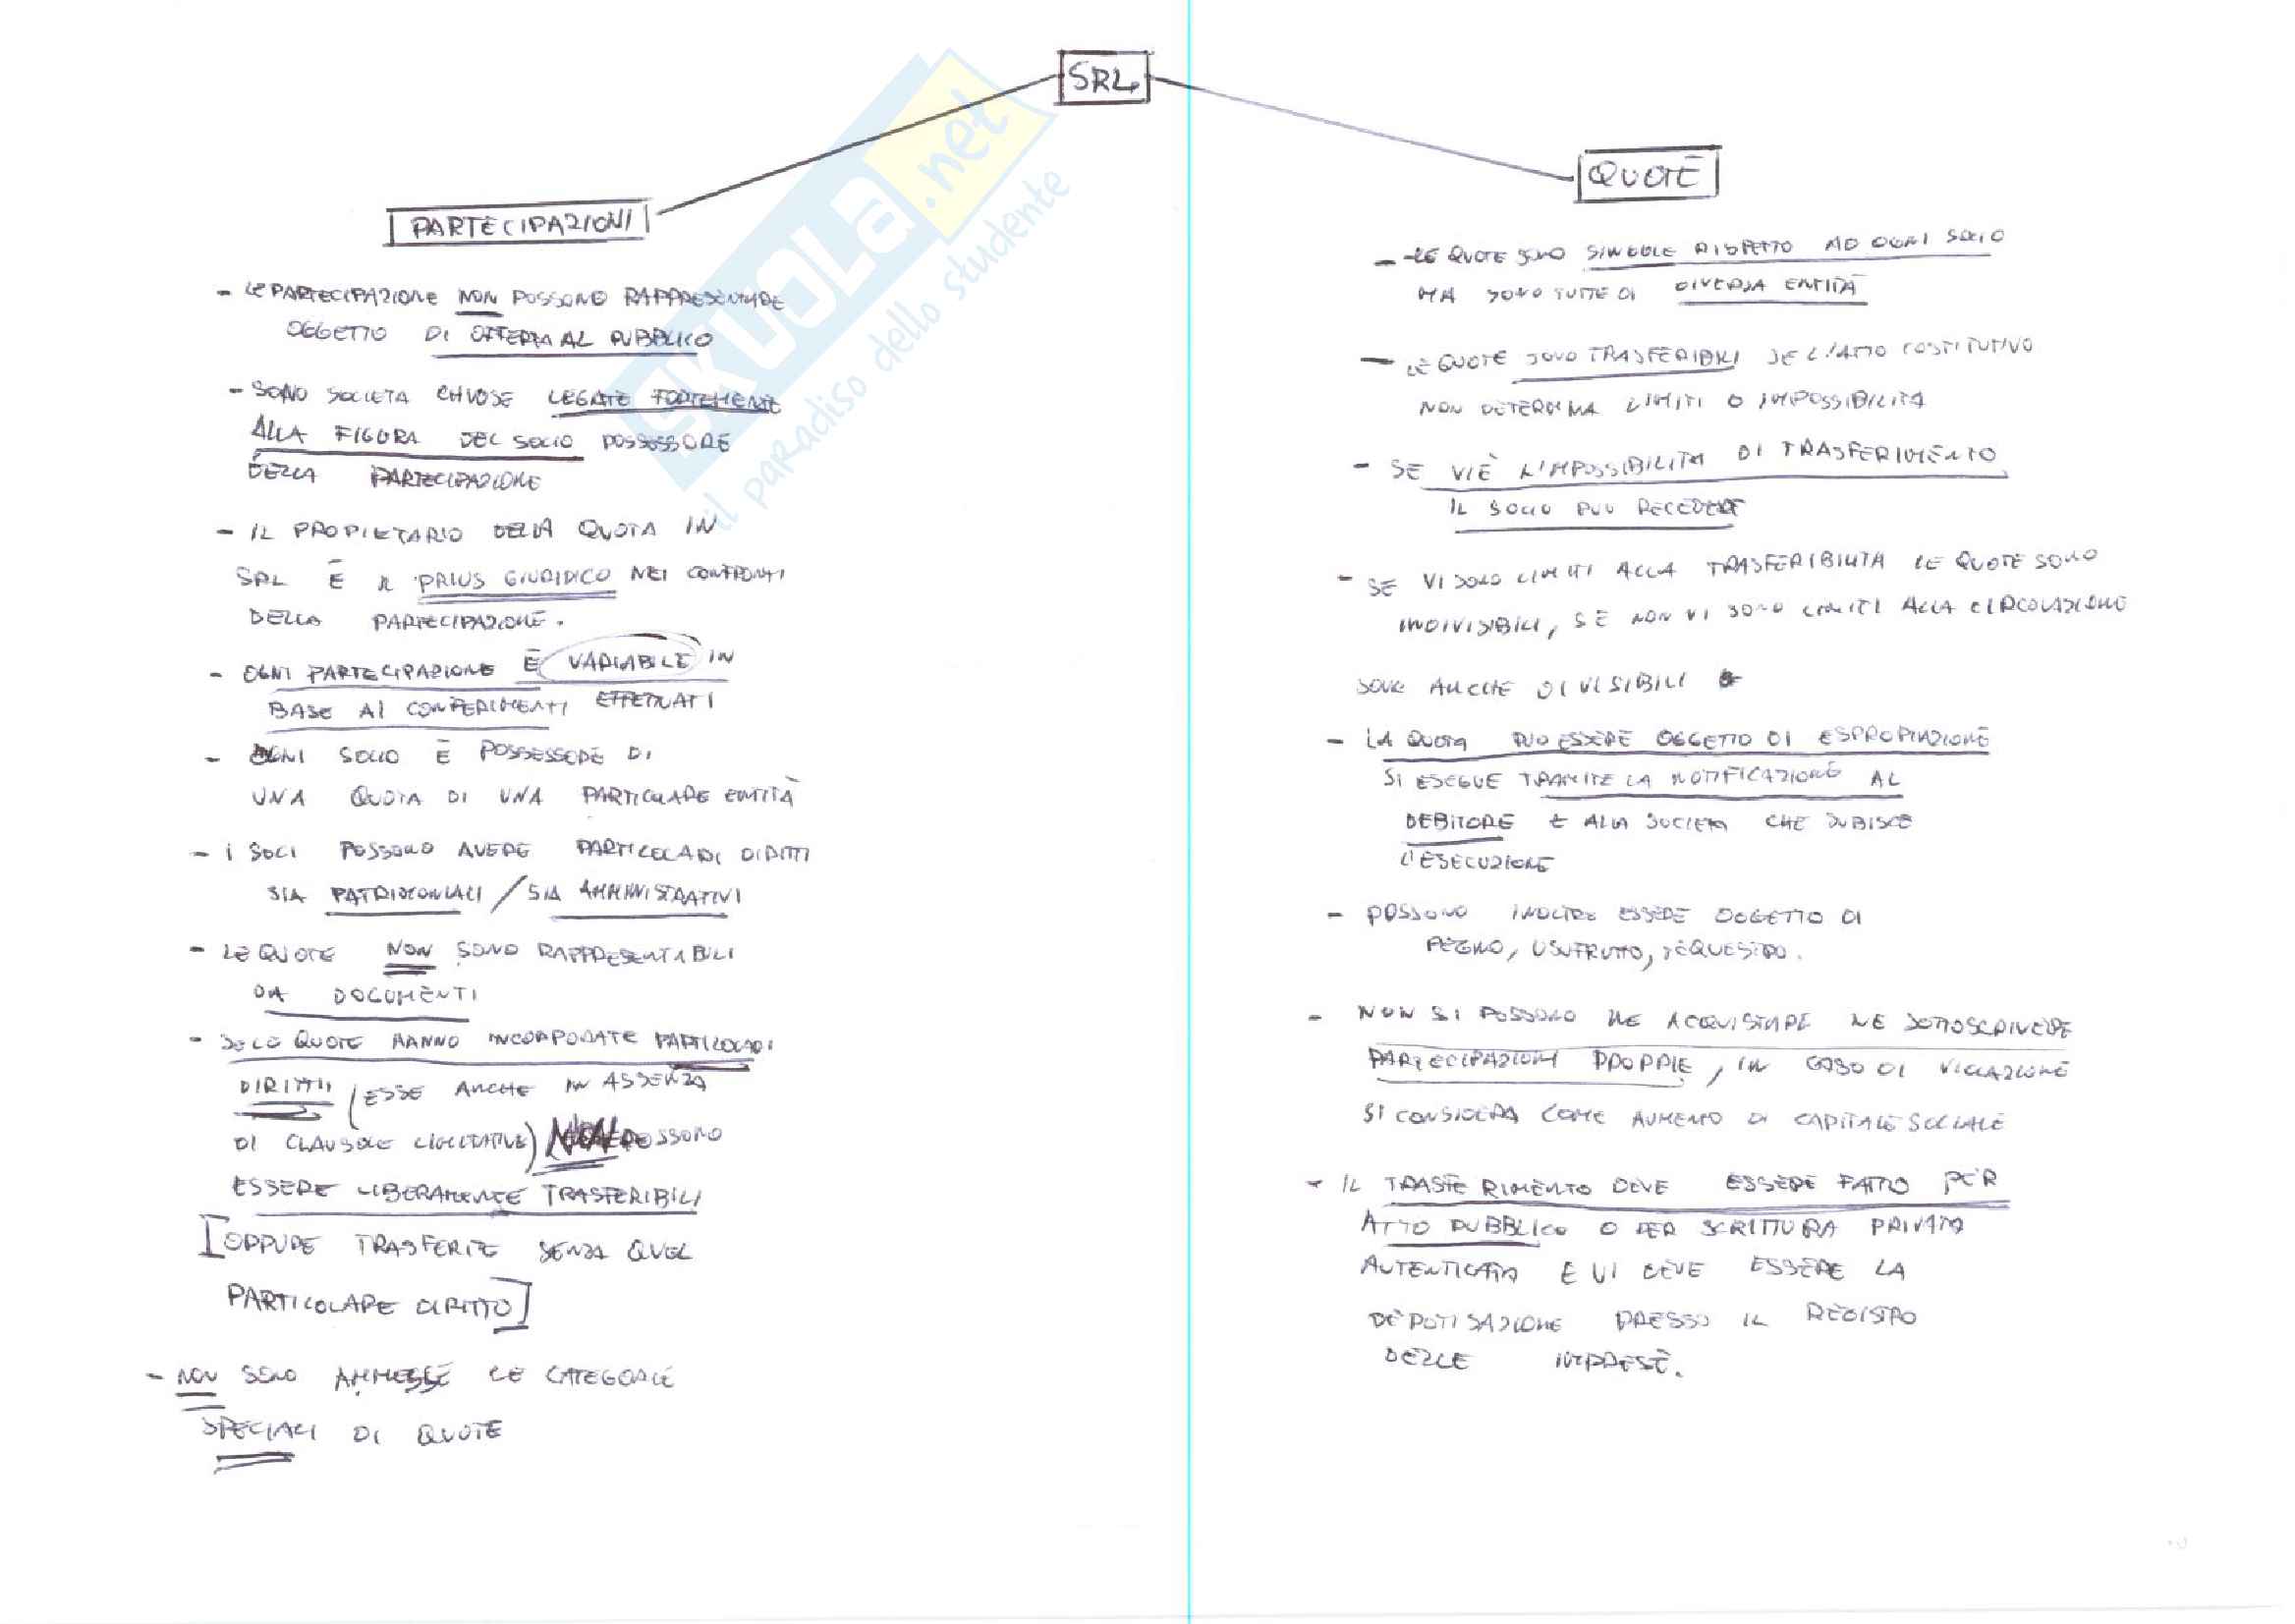 SRL
PARTECIPAZIONI
- LE PARTECIPAZIONE NON POSSONO RAPPRESENTARE
OGGETTO DI OFFERTA AL PUBBLICO
- SONO SOCIETA CHIUSE LEGATE FORTEMENTE
ALLA FIGURA DEL SOCIO POSSESSORE
DELLA PARTECIPAZIONE
- IL PROPIETARIO DELLA QUOTA IN
SRL È IL PRIUS GIURIDICO NEI CONFRONTI
DELLA PARTECIPAZIONE.
- OGNI PARTECIPAZIONE È VARIABILE IN
BASE AI CONFERIMENTI EFFETTUATI
- OGNI SOCIO È POSSESSORE DI
UNA QUOTA DI UNA PARTICOLARE ENTITÀ
- I SOCI POSSONO AVERE PARTICOLARI DIRITTI
SIA PATRIMONIALI / SIA AMMINISTRATIVI
- LE QUOTE NON SONO RAPPRESENTABILI
DA DOCUMENTI
- SE LE QUOTE HANNO INCORPORATE PARTICOLARI
DIRITTI (ESSE ANCHE IN ASSENZA
DI CLAUSOLE LIMITATIVE) NON POSSONO
ESSERE LIBERAMENTE TRASFERIBILI
[OPPURE TRASFERITE SENZA QUEL
PARTICOLARE DIRITTO]
- NON SONO AMMESSE LE CATEGORIE
SPECIALI DI QUOTE
QUOTE
- LE QUOTE SONO SINGOLE RISPETTO AD OGNI SOCIO
MA SONO TUTTE DI DIVERSA ENTITÀ
- LE QUOTE SONO TRASFERIBILI SE L'ATTO COSTITUTIVO
NON DETERMINA LIMITI O IMPOSSIBILITÀ
- SE VIÈ L'IMPOSSIBILITA DI TRASFERIMENTO
IL SOCIO PUO RECEDERE
- SE VI SONO LIMITI ALLA TRASFERIBILITA LE QUOTE SONO
INDIVISIBILI, SE NON VI SONO LIMITI ALLA CIRCOLAZIONE
SONO ANCHE DIVISIBILI
- LA QUOTA PUO ESSERE OGGETTO DI ESPROPIAZIONE
SI ESEGUE TRAMITE LA NOTIFICAZIONE AL
DEBITORE E ALLA SOCIETA CHE SUBISCE
L'ESECUZIONE
- POSSONO INOLTRE ESSERE OGGETTO DI
PEGNO, USUFRUTTO, SEQUESTRO.
- NON SI POSSONO NE ACQUISTARE NE SOTTOSCRIVERE
PARTECIPAZIONI PROPRIE, IN CASO DI VIOLAZIONE
SI CONSIDERA COME AUMENTO DI CAPITALE SOCIALE
- IL TRASFERIMENTO DEVE ESSERE FATTO PER
ATTO PUBBLICO O PER SCRITTURA PRIVATA
AUTENTICATA E VI DEVE ESSERE LA
DEPOTISAZIONE PRESSO IL REGISTRO
DELLE IMPRESE.
SKUOLA.net
il paradiso dello studente